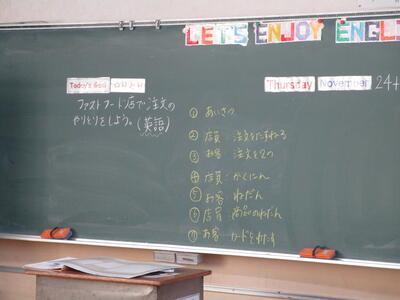 LET'S ENJOY ENGL
Today's Goal
Thursday November 24
ファストフード店で注文の
やりとりをしよう。(英語)
① あいさつ
② 店員 注文をたずねる
③ お客 注文をする
④ 店員 かくにん
⑤ お客 ねだん
⑥ 店員 商品のねだん
⑦ お客 カードをわたす